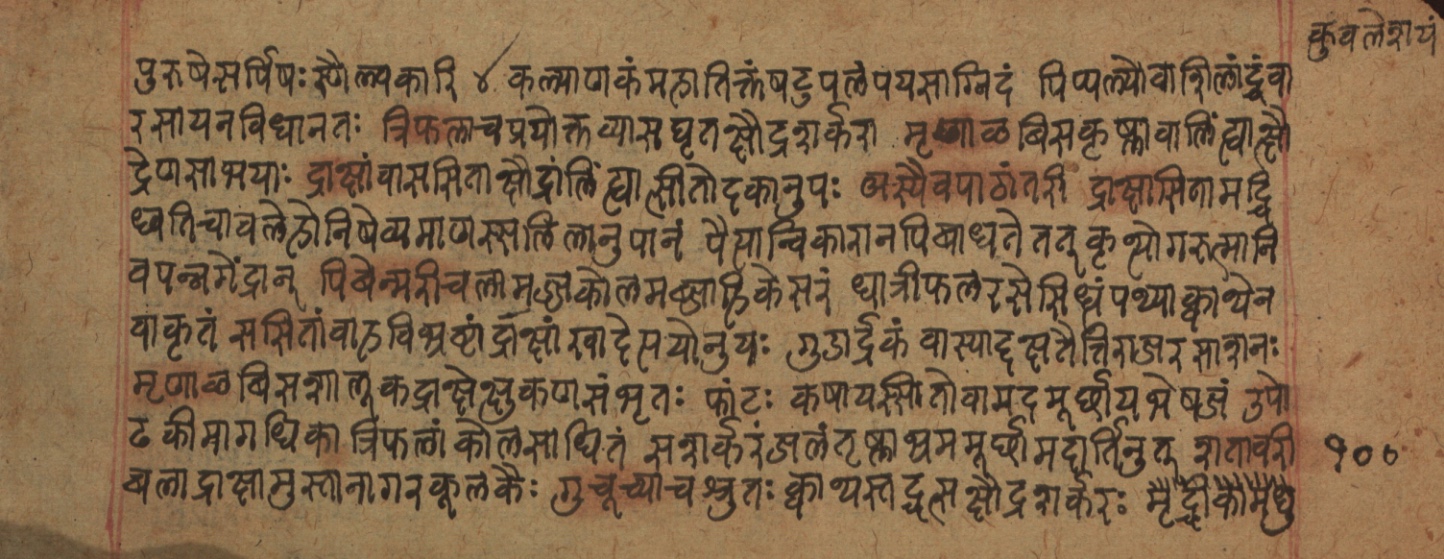 कुवलेशयं
पुरुषेसर्पिषः स्थौल्यकारि ४ कल्याणकंमहातिक्तंषटुपलंपयसाग्निदं पिप्पल्यौवाशिलांद्वंवा
रसायनविधानतः त्रिफलाचप्रयोक्तव्यासघृतक्षौद्रशर्करा मृणाळबिसकृष्णावालिंह्याक्षौ
द्रेणसाभयाः द्राक्षांवाससिताक्षौद्रांलिंह्याछीतोदकानुपः अस्यैवपाठांतरी द्राक्षासितामद्वि
ध्वतिचावलेहोनिषेव्यमाणस्सलिलानुपानं पैत्यान्विकारानपिबाधतेतत्कृछ्रोगरुत्मानि
वपन्नगेंद्रान् पिबेन्मरीचलामज्जकोलमज्जाहिकेसरं धात्रीफलरसेसिधंपथ्याक्वाथेन
वाकृतं ससितांवाहविभ्रष्टांद्राक्षांखादेत्सयोनुयः गुडार्द्रकंवास्याद्दक्षतैत्तिराजरसाशनः
मृणाळबिसशालूकद्राक्षेक्षुकणसंभृतः फांटः कषायस्सितोवामदमूर्छायभेषजं उपो
ढकीमागधिकात्रिफलांकोलसाधितं सशर्करंजलंतृष्णाभ्रममूर्छामदार्तिनुत् शतावरी
१००
बलाद्राक्षामुस्तानागरकूलकैः गुचूच्याचश्रुतः क्वाथस्तद्वत्सक्षौद्रशर्करः मृद्वीकामधु